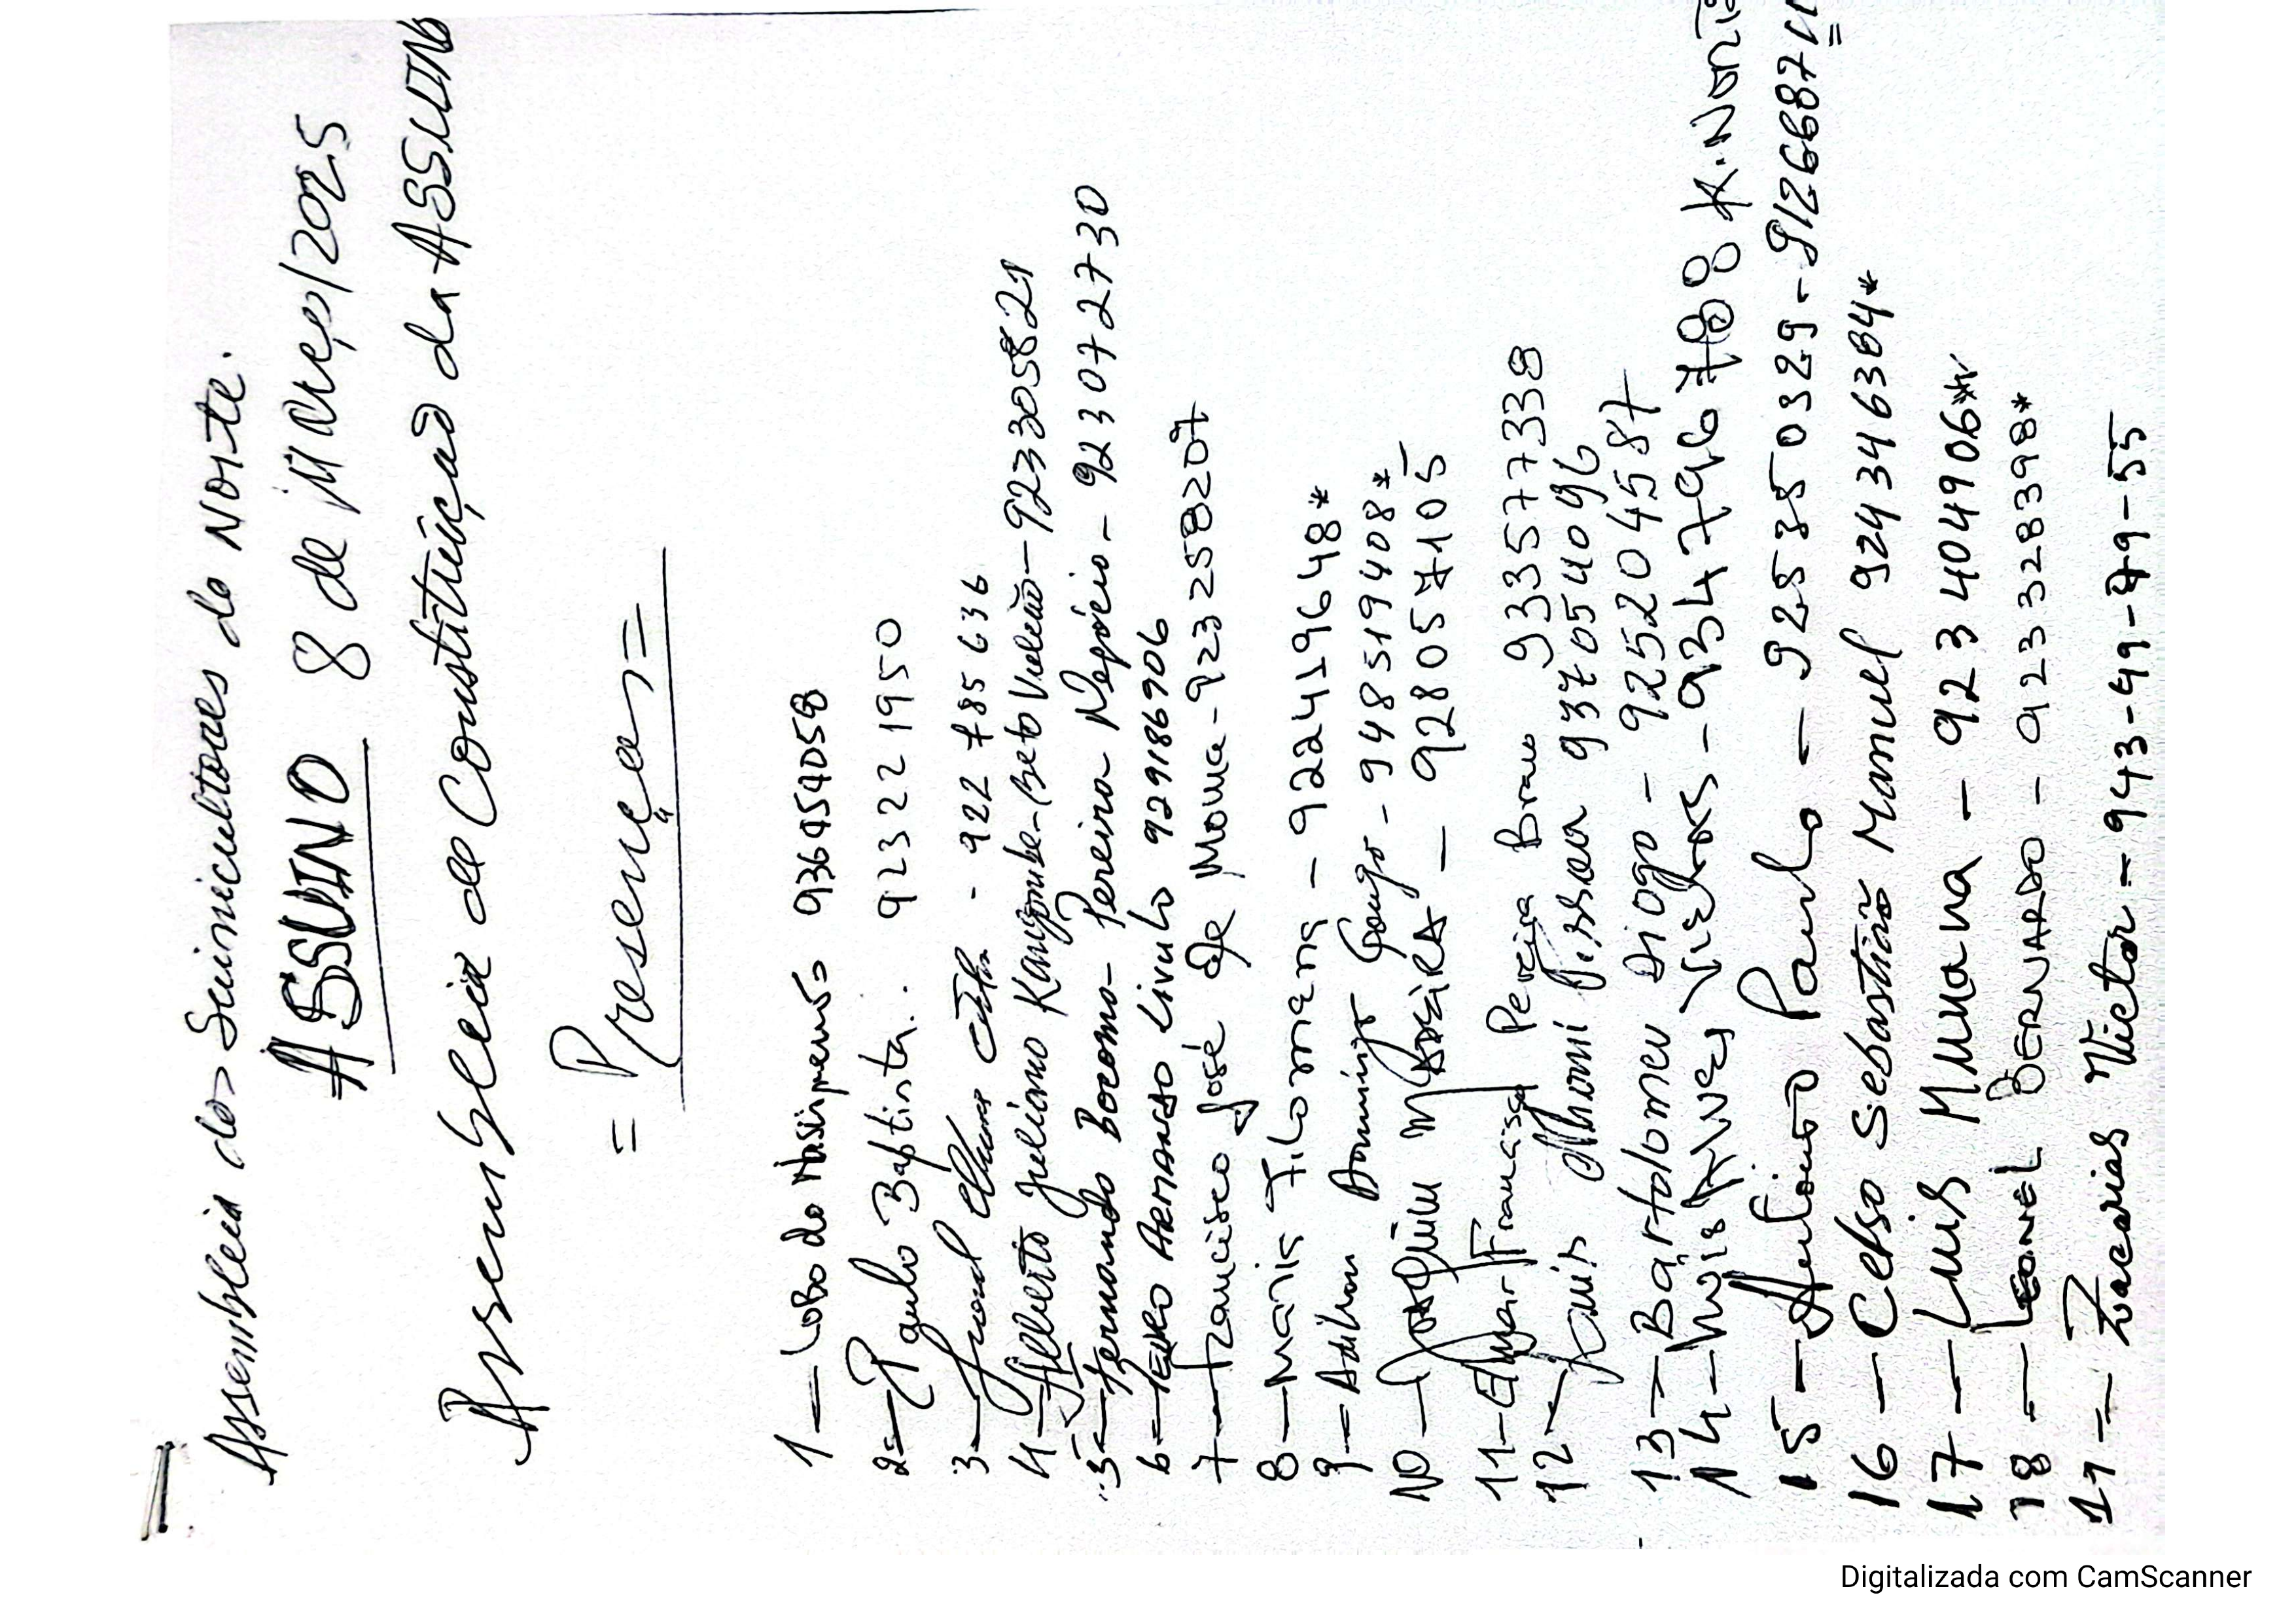 Assembleia dos Suinicultores do Norte.
ASSUINO 8 de Março/2025
Assembleia de Constituição da ASSUINO
= Presenças =
1 — Lobo do Nascimento 936454058
2 — Paulo Baptista. 923221950
3 — - 922785636
4 — Alberto Juliano Kangombe - Beto Vulcão - 923305821
5 — Fernando Bocomo - Pereira Negócio - 923072730
6 — PEDRO ARMANDO Livulo 929186906
7 — Francisco José de Moura - 923258207
8 — Maria Filomena - 922419648*
9 — Adilson Domingos Gongo - 948519408*
10 — JOAQUIM MADEIRA — 928057105
11 — Francisco Pereira Bravo 933577338
12 — 937054096
13 — Bartolomeu Diogo - 925204587
14 — Luis Alves - 934796788 K. Norte
15 — António Paulo — 925350329 - 91266871
16 — Celso Sebastião Manuel 924346384*
17 — Luis Muuana - 923404906**
18 — LEONEL BERNARDO - 923328398*
19 — Zacarias Victor - 943-49-79-55
Digitalizada com CamScanner